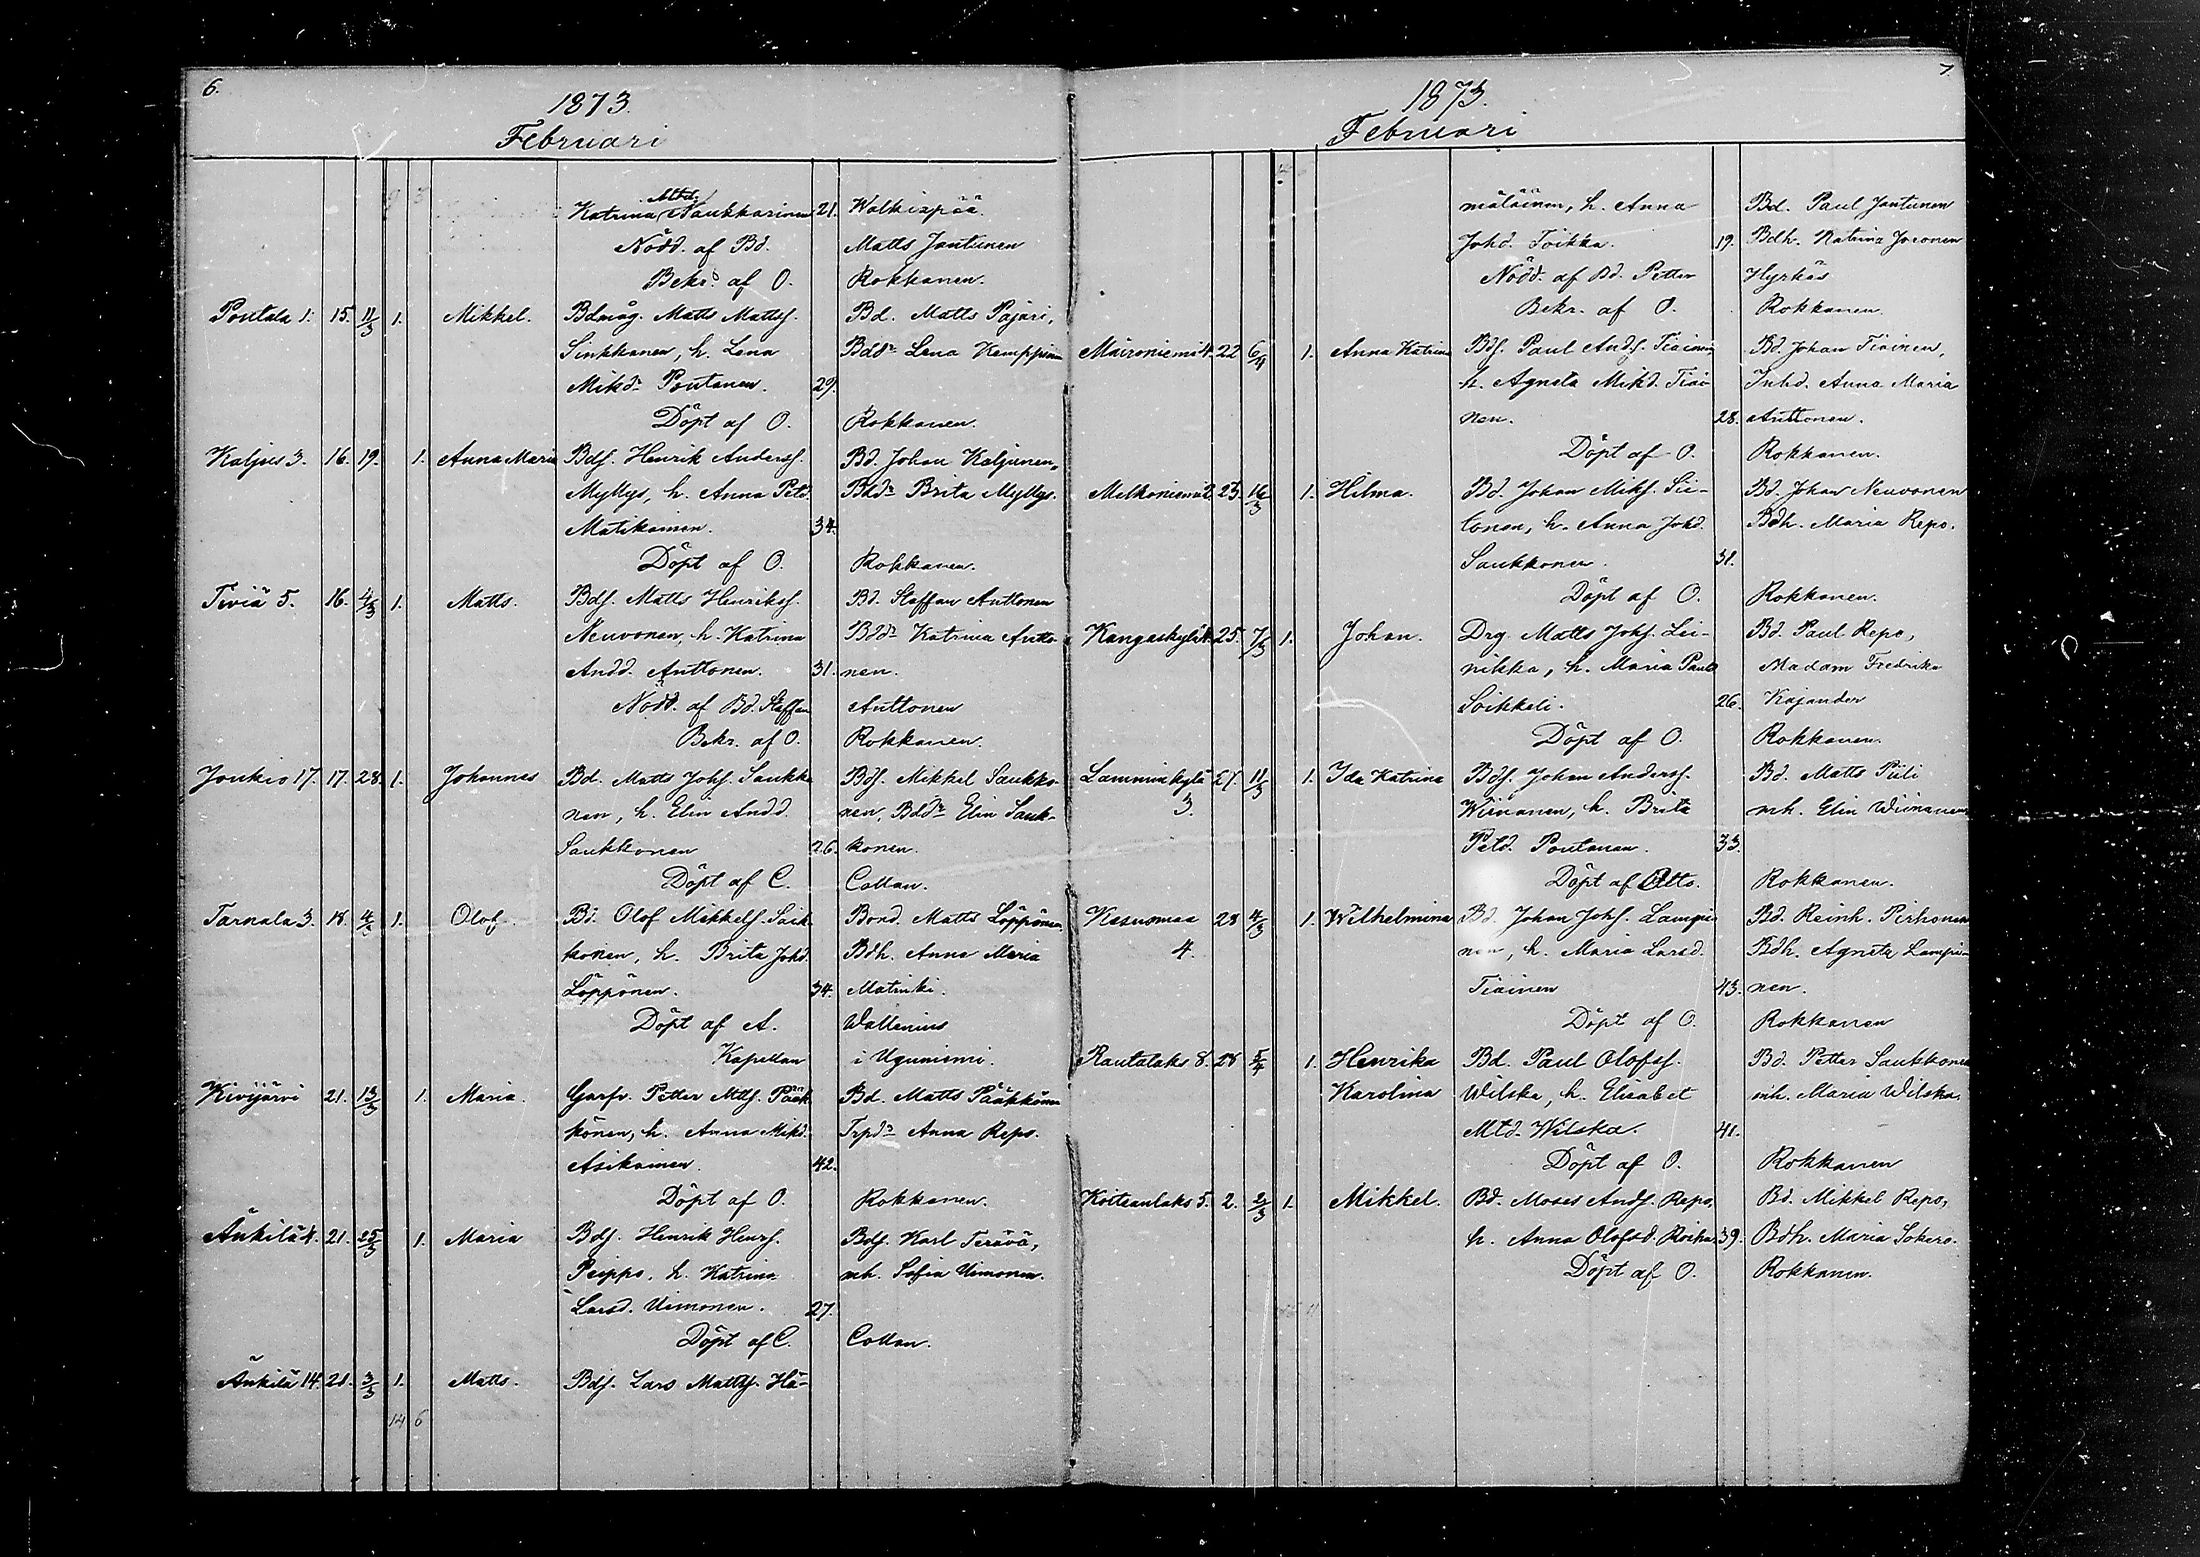 6.
1873.
Februari
Mtd.
Katrina Naukkarinen 21. Walkiapää.
Nödd. af Bd. Matts Jantunen
Bekr. af O. Rokkanen.
Pontala 1. 15. 11/3 1. Mikkel. Bdmåg. Matts Mattss. Bd. Matts Pajari,
Sinkkonen, h. Lena Bddr Lena Kemppinen
Mikdr Pontanen. 29.
Döpt af O. Rokkanen.
Kaljus 3. 16. 19. 1. Anna Maria Bds. Henrik Anderss. Bd. Johan Kaljunen,
Myllys, h. Anna Petd. Bddr Brita Myllys.
Matikainen. 34.
Döpt af O. Rokkanen.
Teviä 5. 16. 4/3 1. Matts. Bds. Matts Henrikss. Bd. Staffan Anttonen
Neuvonen, h. Katrina Bddr Katrina Antto-
Andd. Anttonen. 31. nen.
Nödd. af Bd. Staffan Anttonen
Bekr. af O. Rokkanen.
Joukio 17. 17. 28. 1. Johannes Bd. Matts Johs. Saukko Bds. Mikkel Saukko-
nen, h. Elin Andd. nen, Bddr Elin Sauk-
Saukkonen 26. konen.
Döpt af C. Collan.
Tarnala 3. 18. 4/3 1. Olof. Bd. Olof Mikkels. Saik Bond. Matts Löppönen
konen, h. Brita Johd. Bdh. Anna Maria
Löppönen. 34. Matinki.
Döpt af A. Wallenius
Kapellan i Uguniemi.
Kivijärvi 21. 13/3 1. Maria. Garfv. Petter Mtts. Pääk Bd. Matts Pääkkönen
könen, h. Anna Mikd. Trpdr Anna Repo.
Asikainen. 42.
Döpt af O. Rokkanen.
Änkilä 4. 21. 25/3 1. Maria Bds. Henrik Henrs. Bds. Karl Terävä,
Peippo, h. Katrina mh. Sofia Uimonen.
Larsd. Uimonen. 27.
Döpt af C. Collan.
Änkilä 14. 21. 3/3 1. Matts. Bds. Lars Matts. Hä-
14 6
7.
1873.
Februari
mäläinen, h. Anna Bd. Paul Jantunen
Johd. Toikka. 19. Bdh. Katrina Joronen
Nödd. af Bd. Petter Hyrkäs
Bekr. af O. Rokkanen.
Mäironiemi 4. 22 6/4 1. Anna Katrina Bds. Paul Ands. Tiainen Bd. Johan Tiainen,
h. Agneta Mikd. Tiai- Inhd. Anna Maria
nen. 28. Anttonen.
Döpt af O. Rokkanen.
Melkoniemi 2. 23. 16/3 1. Hilma. Bd. Johan Miks. Sii- Bd. Johan Neuvonen
tonen, h. Anna Johd. Bdh. Maria Repo.
Saukkonen. 31.
Döpt af O. Rokkanen.
Kangaskylä 25. 7/3 1. Johan. Drg. Matts Johs. Lii- Bd. Paul Repo,
nikka, h. Maria Pauls Madam Fredrika
Soikkeli. 26. Kajander
Döpt af O. Rokkanen.
Lamminkylä 27. 11/3 1. Ida Katrina Bds. Johan Anderss. Bd. Matts Piili
3. Wiinanen, h. Brita mh. Elin Wiinanen
Petd. Pontanen. 33.
Döpt af Otto. Rokkanen.
Kesusmaa 28 4/3 1. Wilhelmina Bd. Johan Johs. Lampi Bd. Reinh. Pirhonen
4. nen, h. Maria Larsd. Bdh. Agneta Lampi-
Tiainen 43. nen.
Döpt af O. Rokkanen
Rautalaks 8. 28 5/4 1. Henrika Bd. Paul Olofss. Bd. Petter Saukkonen
Karolina Wilska, h. Elisabet mh. Maria Wilska.
Mtd. Wilska. 41.
Döpt af O. Rokkanen
Koiteanlaks 5. 2. 2/3 1. Mikkel. Bd. Moses Ands. Repo, Bd. Mikkel Repo,
h. Anna Olofsd. 39. Bdh. Maria Sokero.
Döpt af O. Rokkanen.